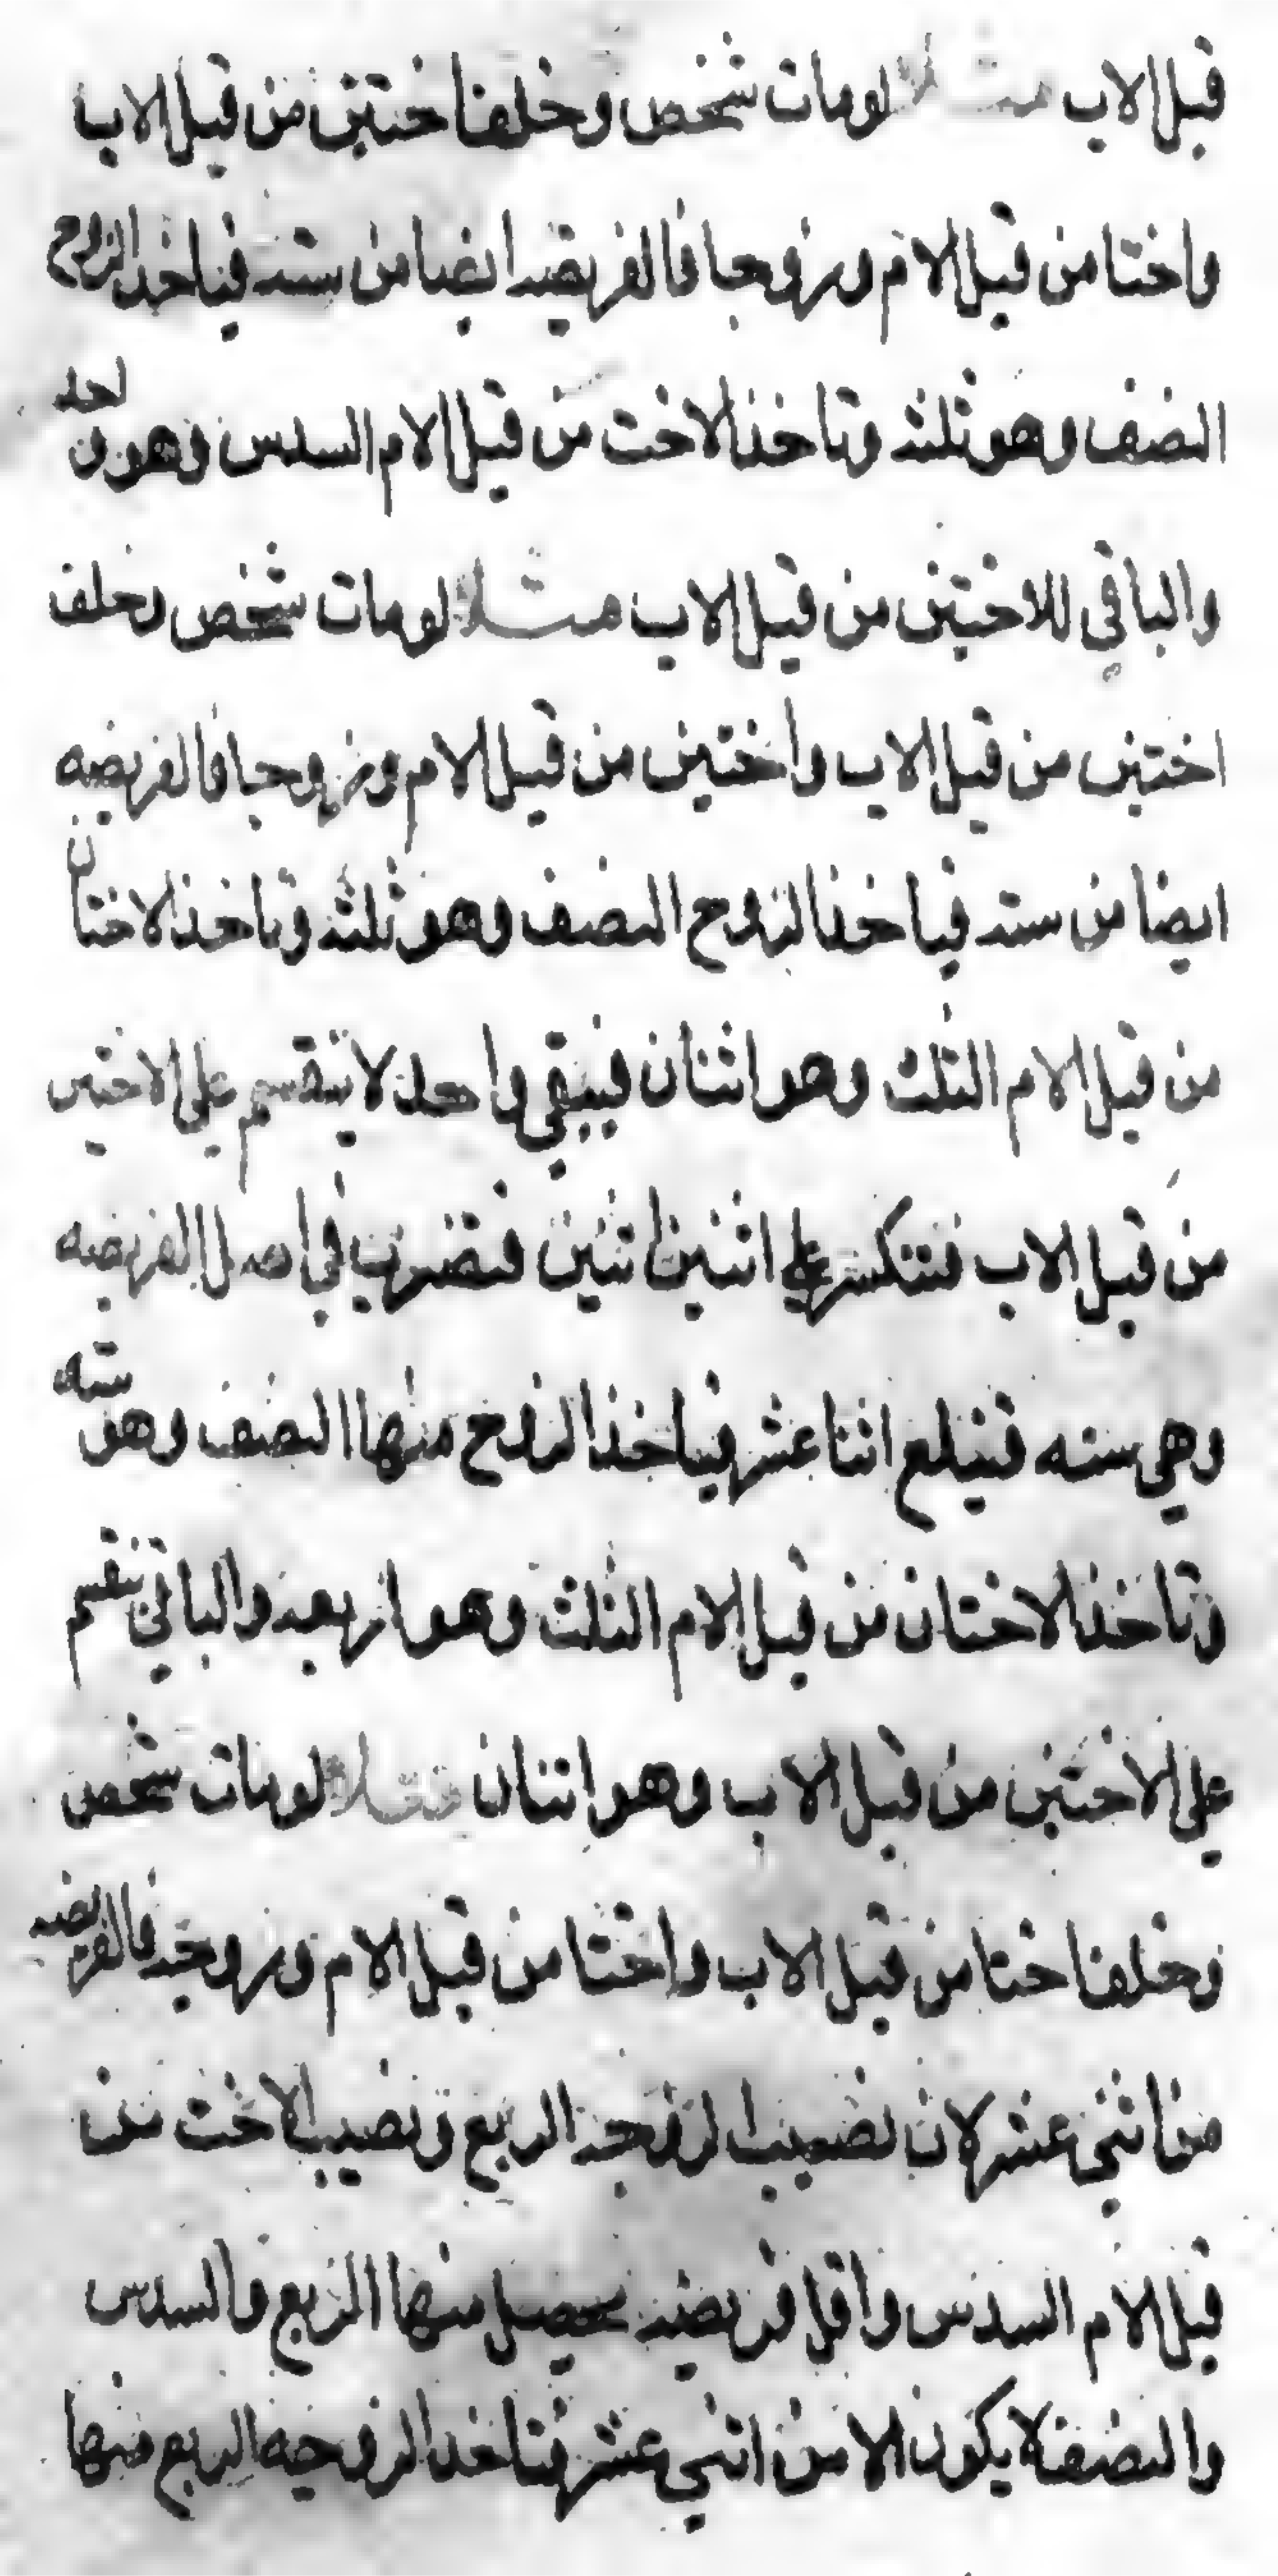 قبل الاب مثلا لو مات شخص وخلف اختين من قبل الاب
واختا من قبل الام وزوجا فالفريضه ايضا من سته فياخذ الزوج
النصف وهو ثلثه وتاخذ الاخت من قبل الام السدس وهو واحد
والباقي للاختين من قبل الاب مثلا لو مات شخص وخلف
اختين من قبل الاب واختين من قبل الام وزوجا فالفريضه
ايضا من سته فياخذ الزوج النصف وهو ثلثه وتاخذ الاختان
من قبل الام الثلث وهو اثنان فيبقي واحد لا ينقسم علي الاختين
من قبل الاب فتنكسر علي اثنين اثنين فتضرب في اصل الفريضه
وهي سته فتبلغ اثنا عشر فياخذ الزوج منها النصف وهو سته
وتاخذ الاختان من قبل الام الثلث وهو اربعه والباقي تنقسم
علي الاختين من قبل الاب وهو اثنان مثلا لو مات شخص
وخلف اختا من قبل الاب واختا من قبل الام وزوجه فالفريضه
من اثني عشر لان نصيب الزوجه الربع ونصيب الاخت من
قبل الام السدس واقل فريضه يحصل منها الربع والسدس
والنصف لا يكون الا من اثني عشر فتاخذ الزوجه الربع منها